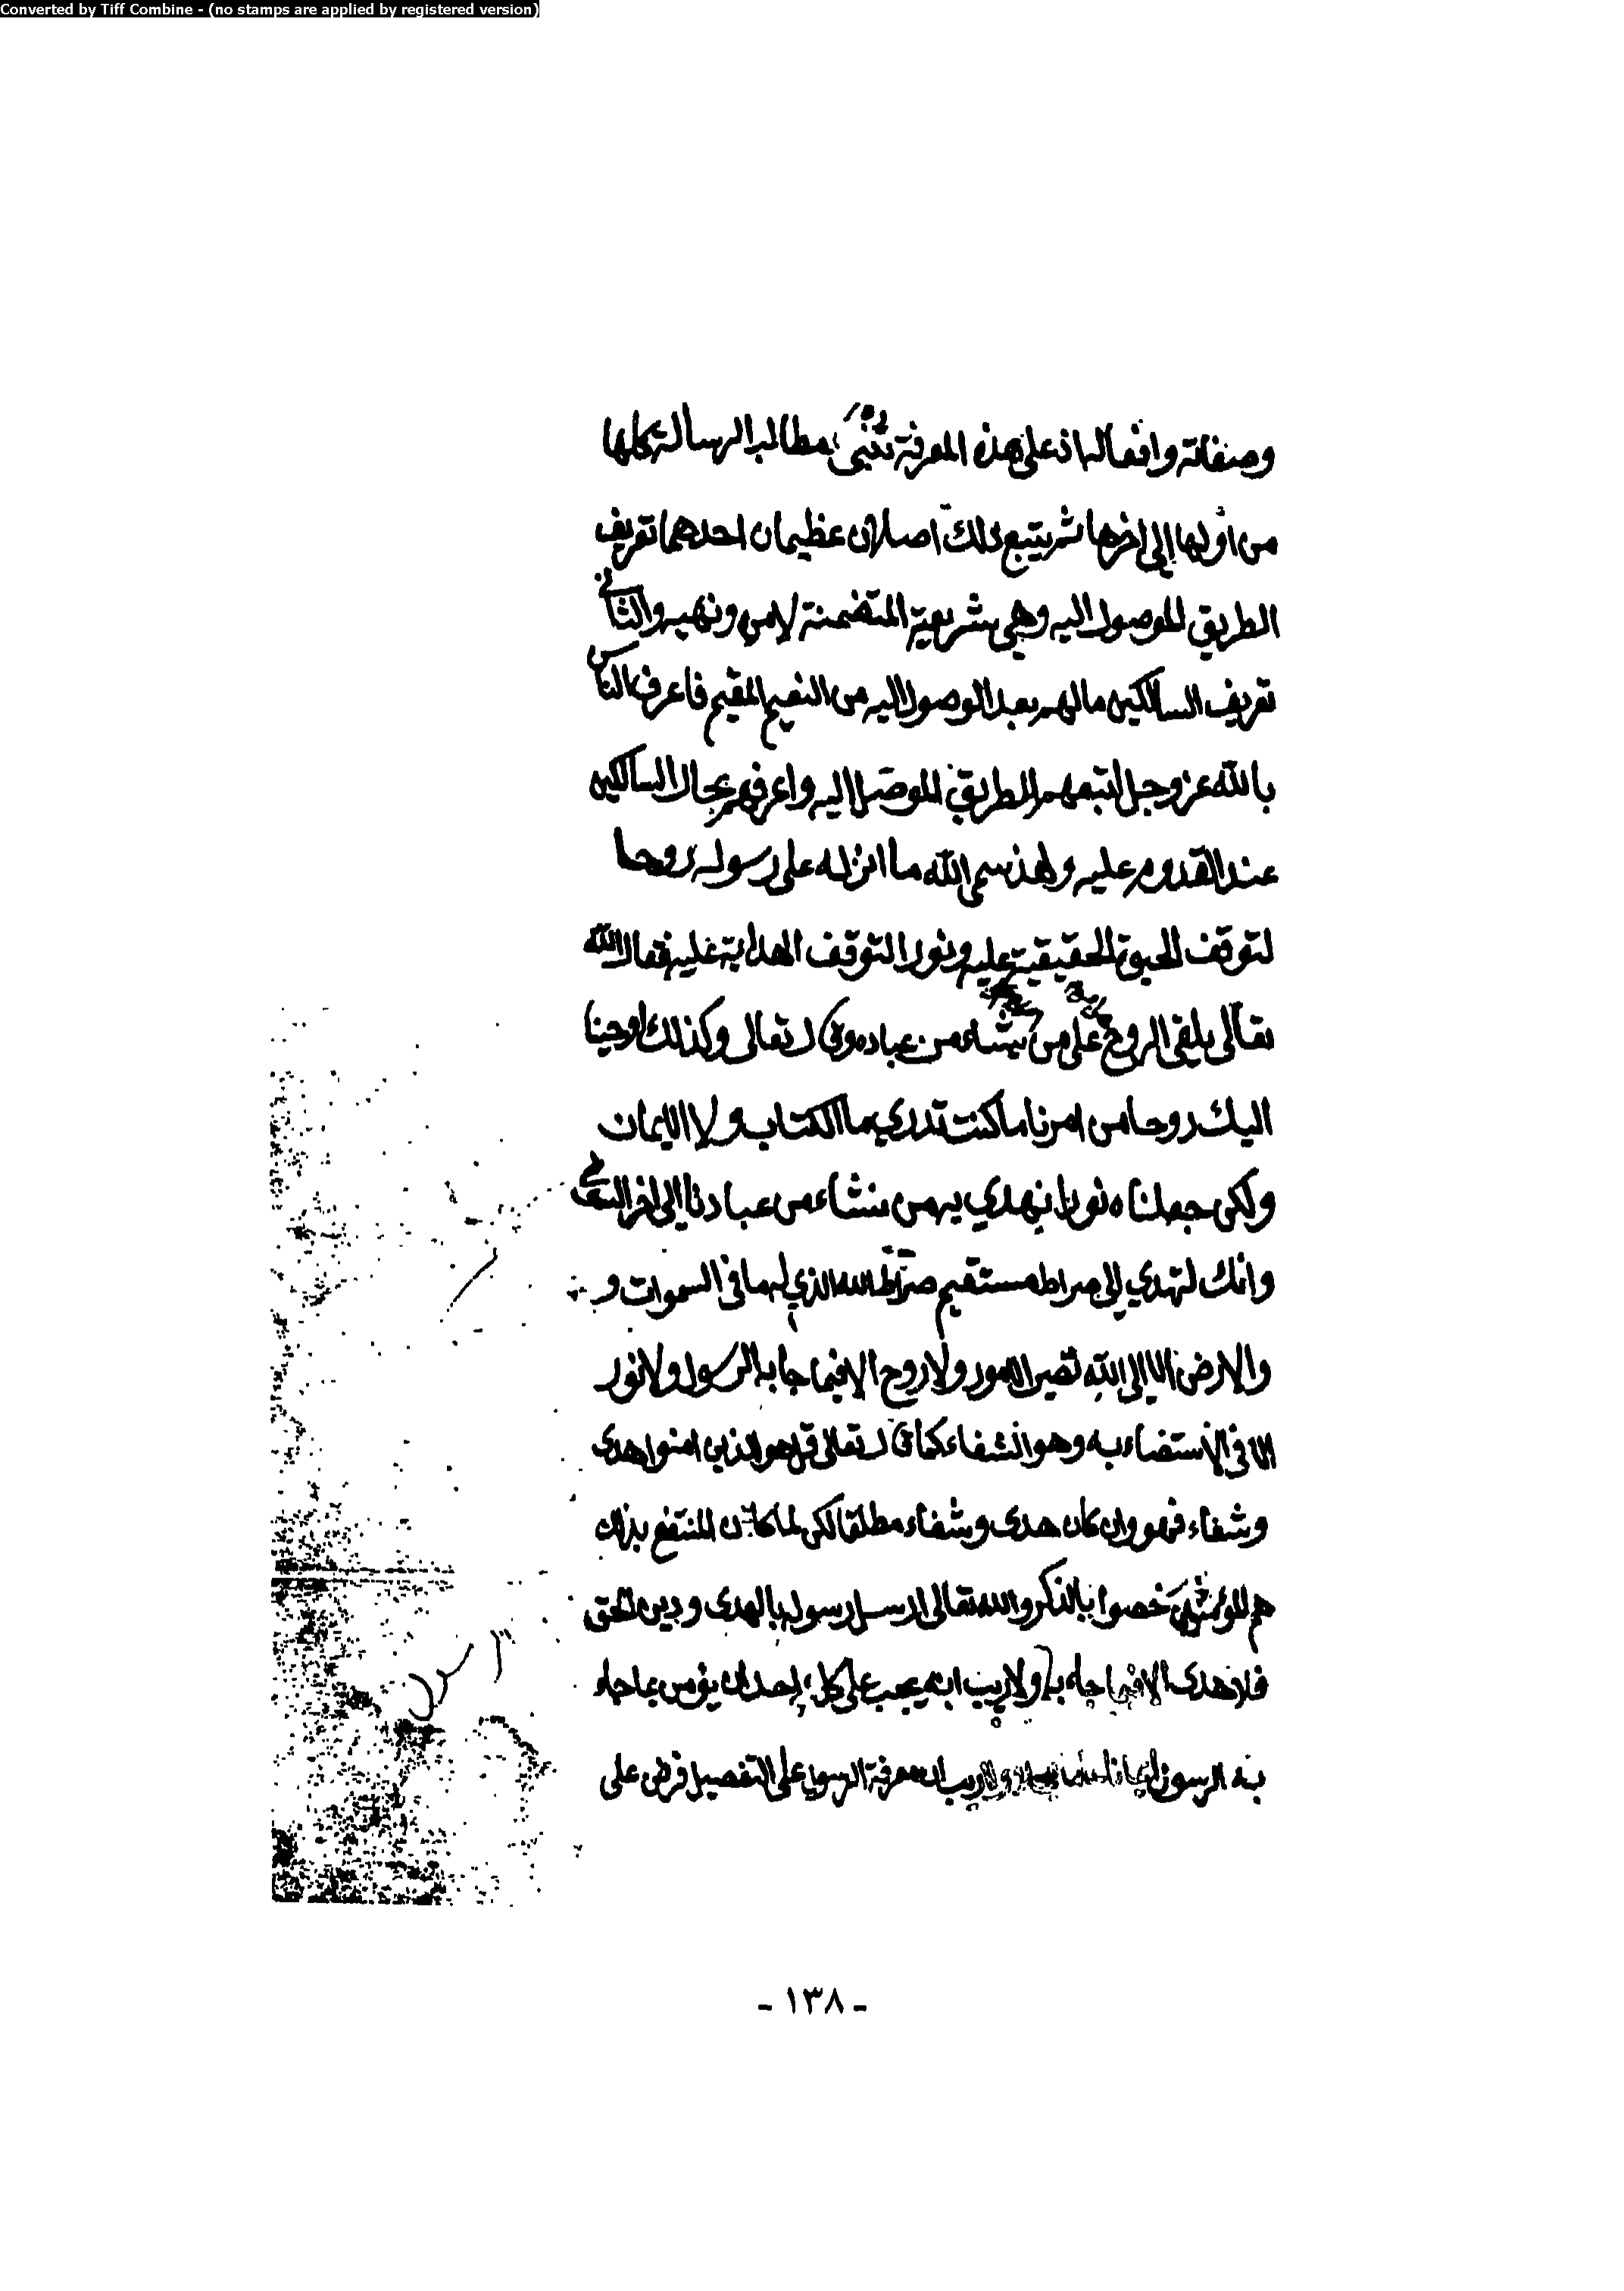 Converted by Tiff Combine - (no stamps are applied by registered version)
وصفاته وافعاله اذ على هذه المعرفة تنبنى مطالب الرسالة كلها
من اولها إلى اخرها ثم يتبع ذلك اصلان عظيمان احدهما تعريف
الطريق الموصول اليه وهي شريعته المتضمنة لامره ونهيه والثاني
تعريف السالكين مالهم بعد الوصول اليه من النعيم المقيم فاعرف الناس
بالله عز وجل اتبعهم للطريق الموصل اليه واعرفهم بحال السالكين
عند القدوم عليه ولهذ سمى الله ما انزله على رسوله روحا
لتوقف الحيوة الحقيقية عليه ونورا لتوقف الهداية عليه فقال الله
تعالى يلقى الروح على من يشاء من عباده وقال تعالى وكذلك اوحينا
اليك روحا من امرنا ما كنت تدري ما الكتاب ولا الايمان
ولكن جعلناه نورا نهدي به من نشاء من عبادنا إلى اخر
وانك لتهدي إلى صراط مستقيم صراط الله الذي له ما فى السموات و
والارض الا إلى الله تصير الامور ولا روح الا فيما جا به الرسول ولا نور
الا فى الاستضاء به وهو الشفاء كما قال تعالى قل هو للذين امنوا هدى
وشفاء فهو وان كان هدى وشفاء مطلقا لكن لما كان المنتفع بذلك
هم المؤمنين خصوا بالذكر والله تعالى ارسل رسوله بالهدى ودين الحق
فلا هدى الا فيما جاء به ولا ريب انه يجب على كل احد ان يؤمن بما جاء
به الرسول ولا ريب ان معرفة الرسول على التفصيل فرض على
- ١٣٨ -